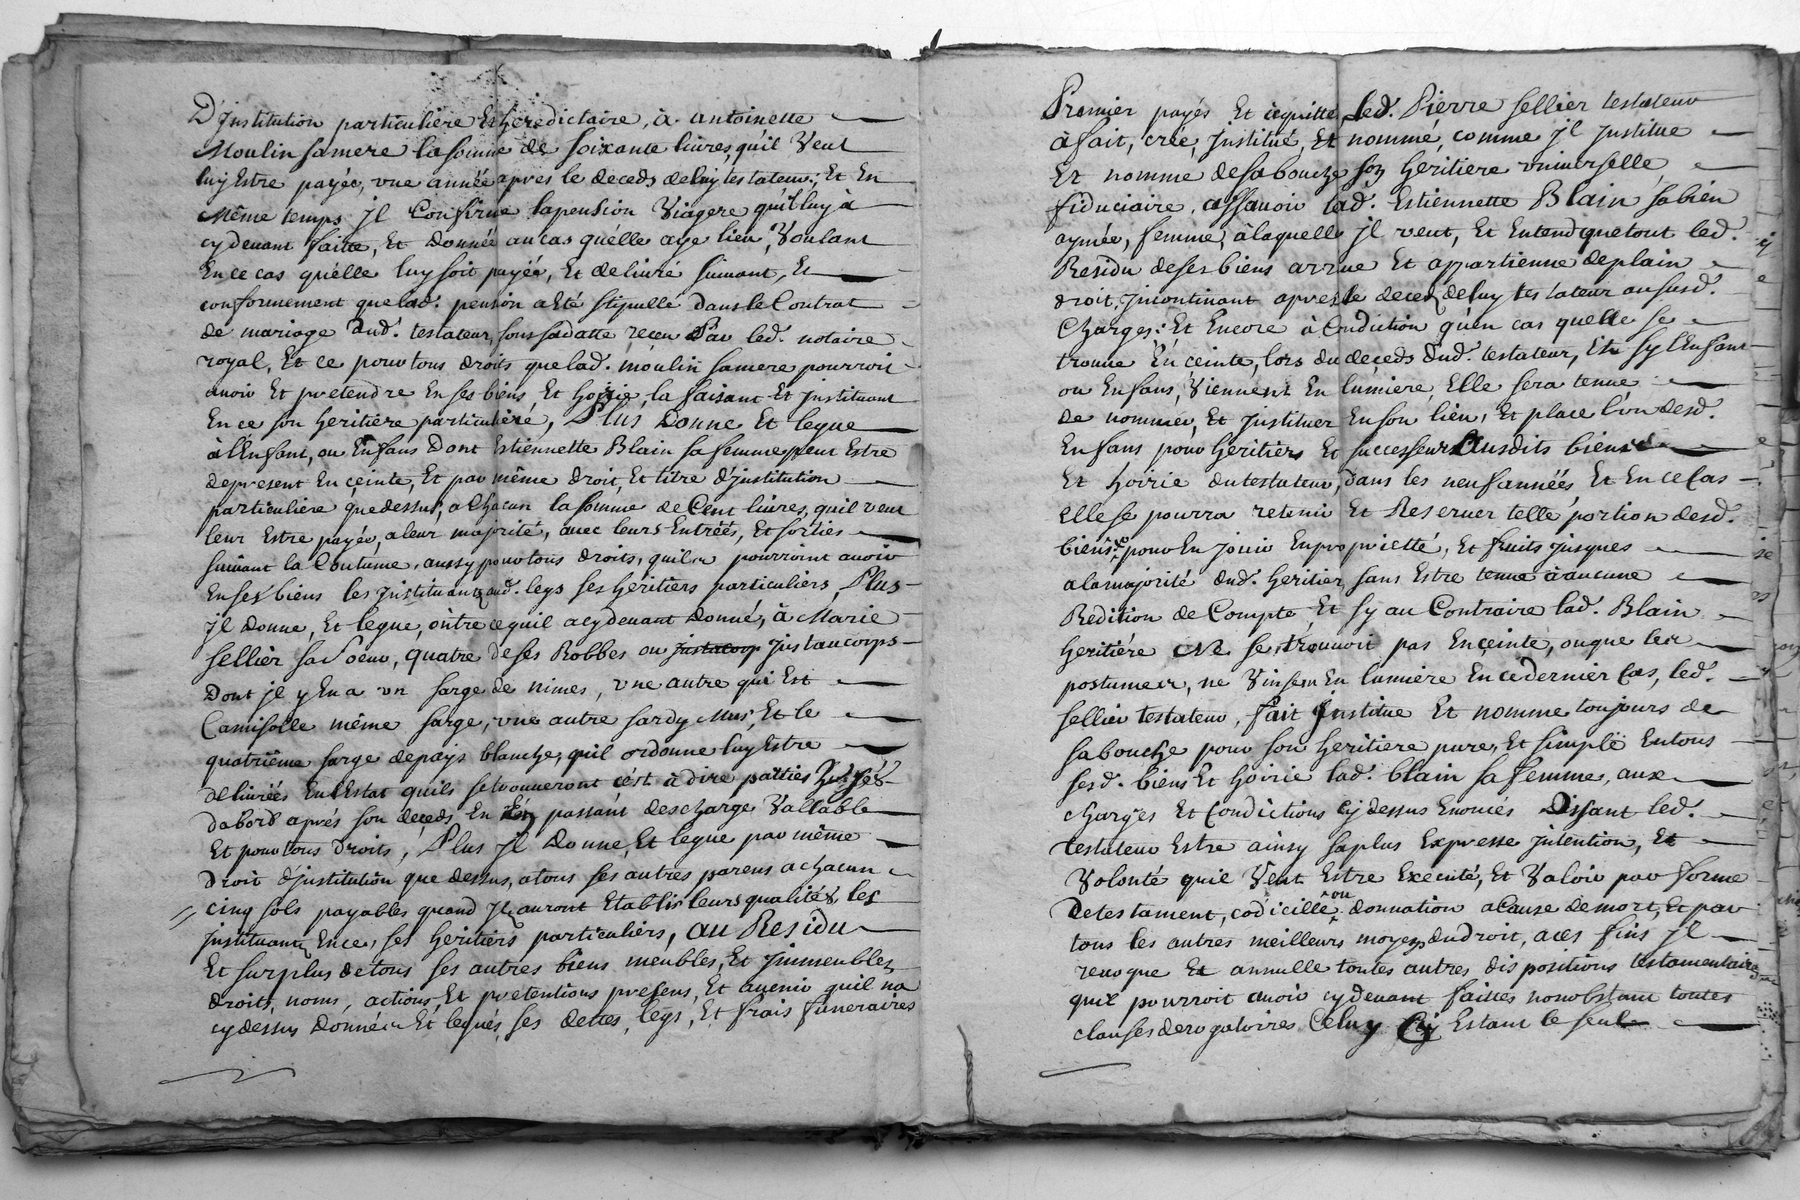 D'Institution particuliere Et heredictaire, à antoinette
Moulin samere la somme de soixante livres, qu'il Veut
luy Estre payée, vne année apres le deceds deluy testateur; Et En
même temps jl Confirme lapension Viagere qu'il luy à
cy devant faitte, Et donnée au cas qu'elle aye lieu, Voulant
En ce cas qu'elle luy soit payée, Et delivré suivant, Et
conformement que lad. pension a Eté stipullé dans le Contrat
de mariage dud. testateur, sous sa datte receu Par led. notaire
royal, Et ce pour tous droits que lad. moulin samere pourroit
avoir Et pretendre En ses biens, Et hoirie, la faisant Et jnstituant
En ce son heritiere particulière, Plus Donne Et legue
à l'Enfant, ou Enfans Dont Estiennette Blain sa femme peut Estre
depresent En ceinte, Et par même droit, Et titre d'jnstitution
particuliere que dessus, a Chacun la somme de Cent livres, quil veut
leur Estre payée, a leur majorité, avec leurs Entrées, Et sorties
suivant la Coutume, aussy pour tous droits, quils pourroint avoir
En ses biens les jnstituant aud. legs ses heritiers particuliers, Plus
jl Donne, Et legue, outre ce quil a cy devant Donné, à Marie
sellier sa soeur, quatre de ses Robbes ou justacoup justaucorps
Dont jl y En a un sarge de nimes, vne autre qui Est
Camisolle même sarge, vne autre sardy Mus, Et le
quatrième sarge depaÿs blanche, quil ordonne luy Estre
delivrées En l'Estat quils se trouveront c'est à dire patties
dabord aprés son deceds, En passant descharge Vallable
Et pour tous Droits, Plus jl Donne, Et legue par même
Droit d'jnstitution que dessus, a tous ses autres parens a chacun
cinq sols payables quand jls auront Etablis leurs qualités, les
jnstituant En ce, ses heritiers particuliers, au Residu
Et surplus de tous ses autres biens meubles, Et jmmeubles
droits, noms, actions Et pretentions presens, Et avenir quil na
cy dessus Donnés Et legués, ses dettes, legs, Et frais funeraires
Premier payés Et acquittes, led. Pierre sellier testateur
à fait, créé, jnstitué, Et nommé, comme jl jnstitue
Et nomme de sa bouche son heritiere vniverselle,
fiduciaire, assavoir lad. Estiennette Blain sa bien
aymée, femme, à laquelle jl veut, Et Entend que tout led.
Residu de ses biens arrive Et appartienne deplain
droit, jncontinant apres le deceds de luy testateur au susd.
Charges; Et Encore à Condiction qu'en cas quelle se
trouve En ceinte, lors du deceds dud. testateur, Et sy l'Enfant
ou Enfans, Viennent En lumière, Elle sera tenue
de nommer, Et jnstituer En son lieu, Et place l'un desd.
Enfans pour heritiers Et successeurs Ausdits biens
Et hoirie du testateur, dans les neuf années Et En ce Cas
Elle se pourra retenir Et Reserver telle portion desd.
biens pour En jouir En propriètté, Et fruits jusques
a la majorité dud. heritier, sans Estre tenue à aucune
Redition de Compte, Et sy au Contraire lad. Blain
heritiére Ne se trouvoit pas Enceinte, ou que les
postumes, ne Vinsent En lumière En ce dernier Cas, led.
sellier testateur, fait jnstitue Et nomme toujours de
sa bouche pour son heritiere pure, Et simple En tous
sesd. biens Et hoirie lad. blain sa femme, aux
charges Et Condictions cy dessus Enoncés Disant led.
testateur Estre ainsy sa plus Expresse jntention, Et
Volonté quil Veut Estre Executé, Et Valoir par forme
De testament, codicille, ou donnation a Cause de mort, Et par
tous les autres meilleurs moyens dudroit, a ces fins jl
revoque Et annulle toutes autres dispositions testamentaires
quil pourroit avoir cy devant faittes nonobstant toutes
clauses derogatoires Celuy Cy Estant le seul